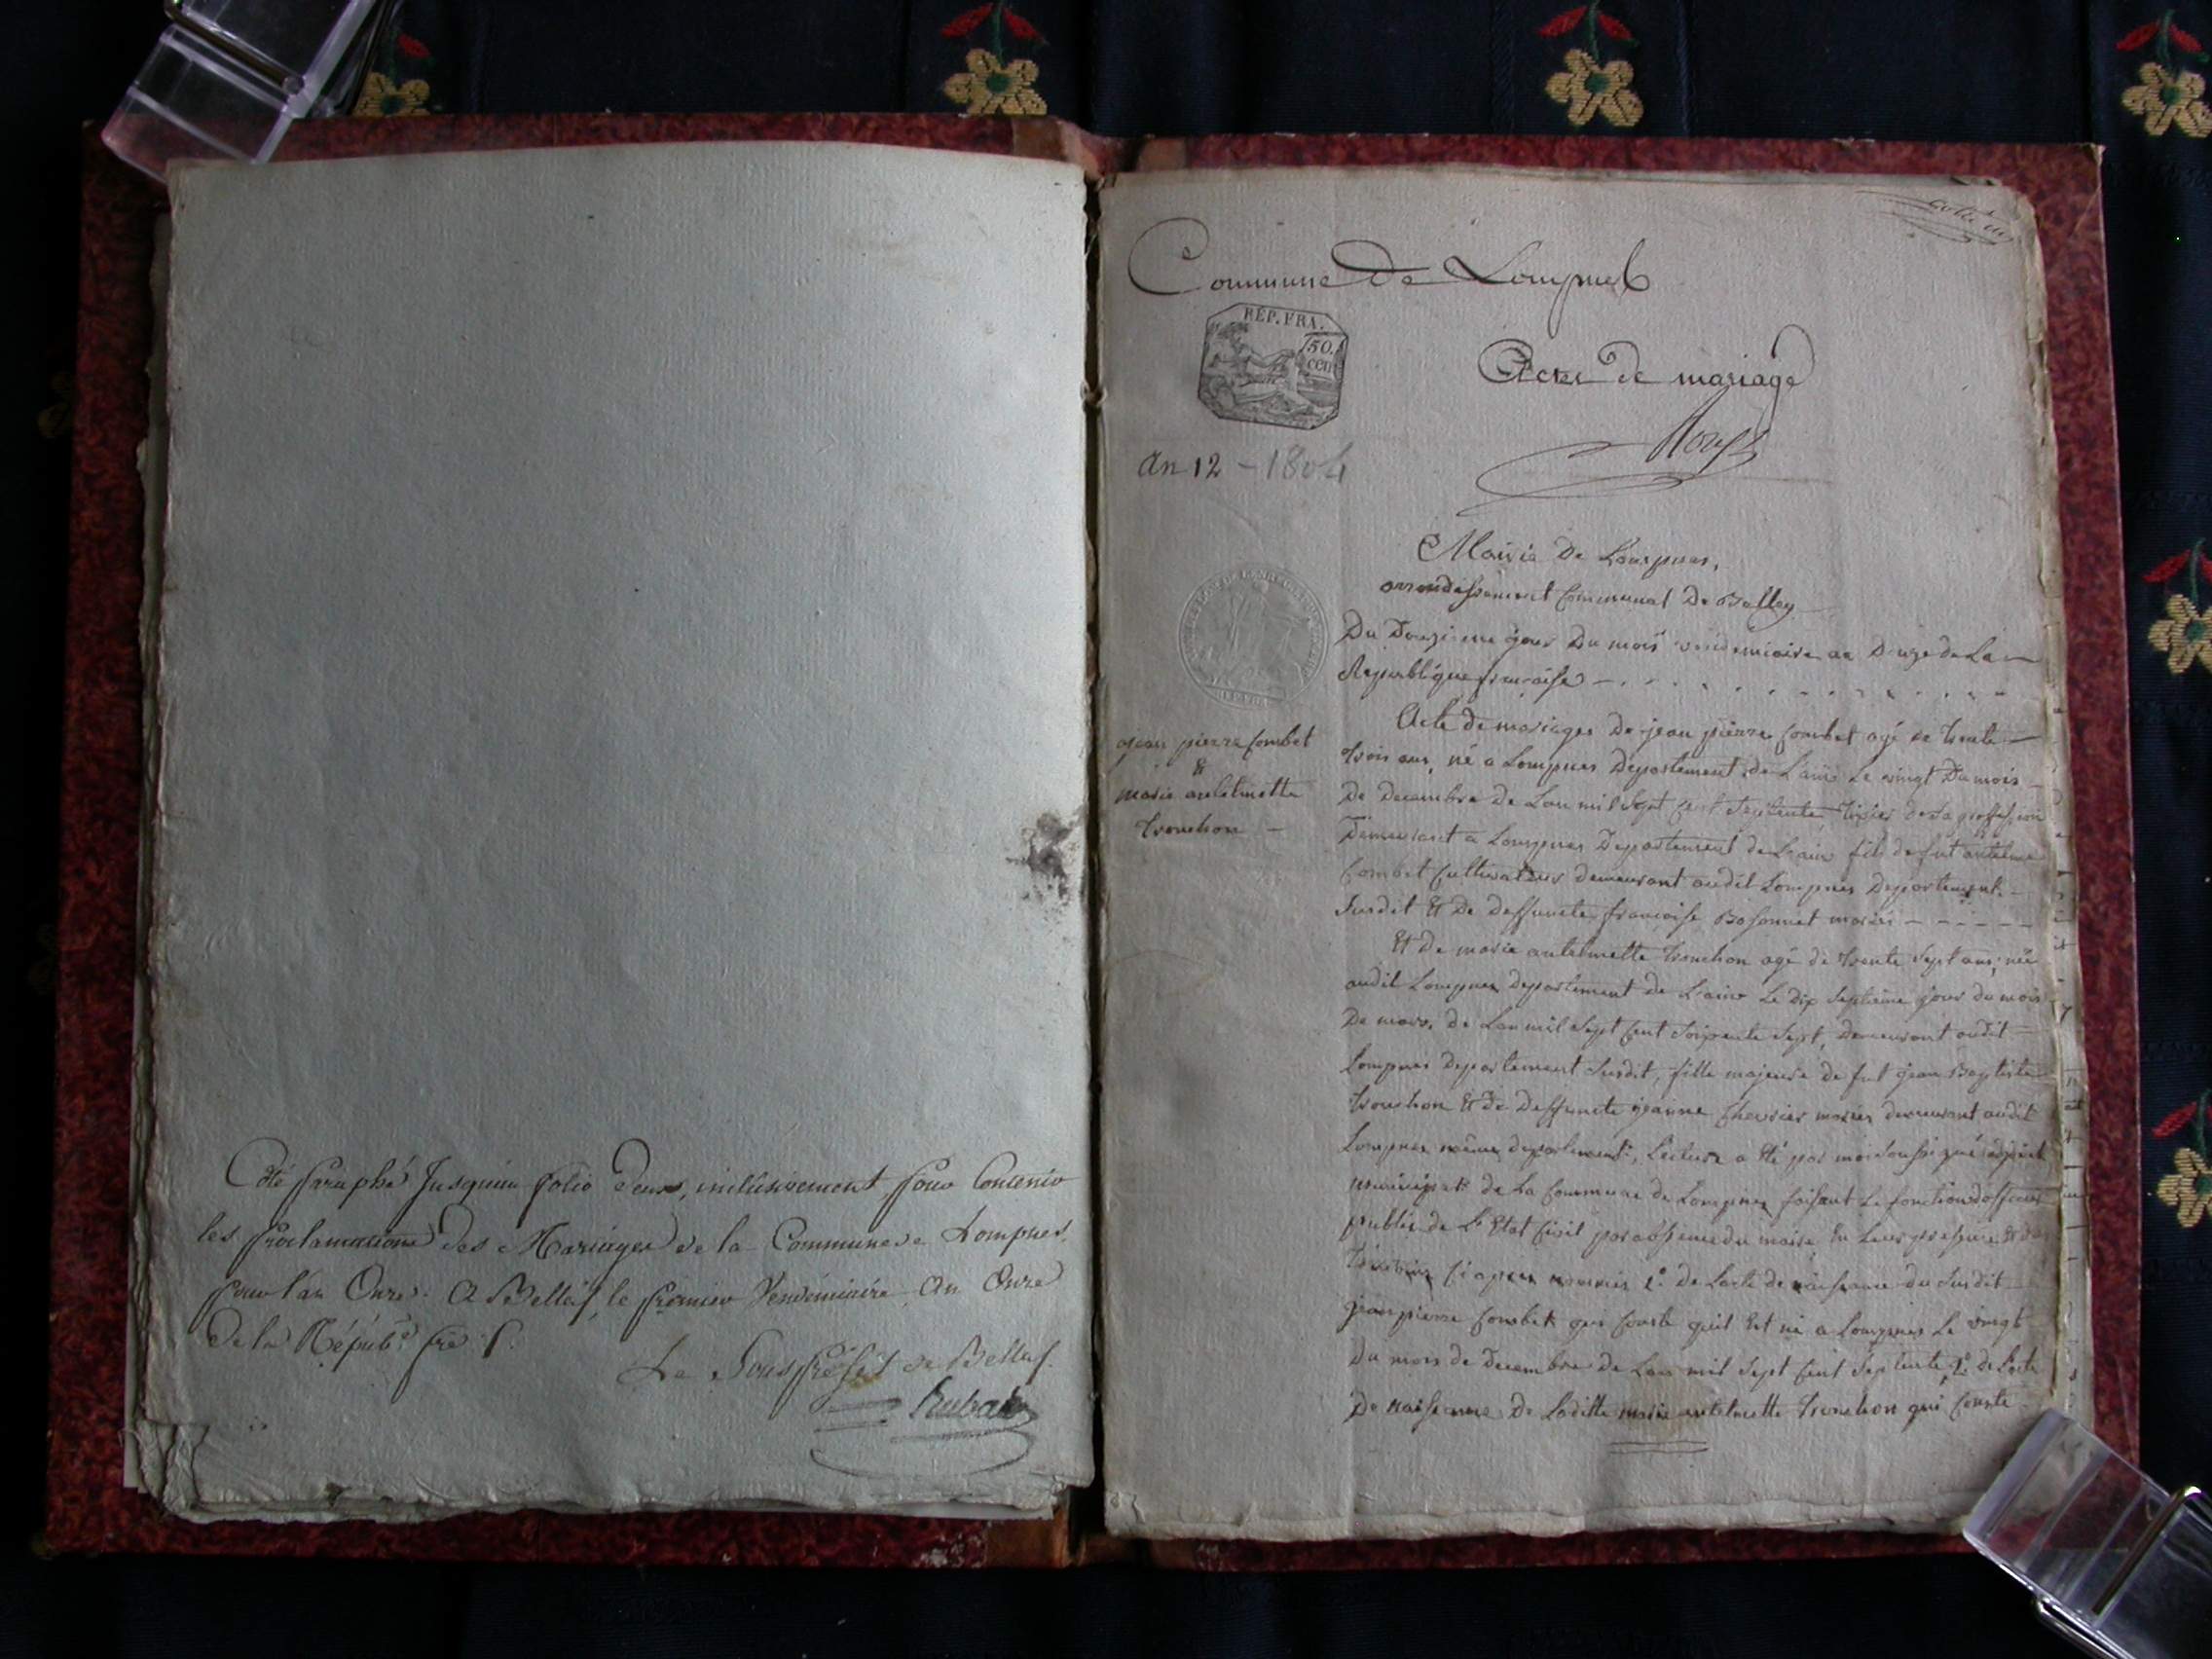 Coté paraphé jusqu'au folio deux, inclusivement pour Contenir
les proclamations des Mariages de la Commune de Lompnes
pour l'an Onze. A Belley, le premier Vendémiaire An Onze
De la Répub. fse.
Le Sous préfet de Belley.
Rubat
Cotte un
Commune De Lompnes
RÉP. FRA.
50.
cen
Actes de mariage
An 12 - 1804
Mairie De Lompnes,
arrondissement Communal De Belley
Du Douzieme jour Du mois vendemiaire an Douze de La
Republique française
jean pierre Combet
&
marie antelmette
Tronchon
Acte de mariage De jean pierre Combet agé de trente
trois ans, né a Lompnes Departement de L'ain Le vingt Du mois
De Decembre de Lan mil Sept Cent Septente de Sa profession
Demeurant a Lompnes Departement de L'ain fils de fut antelme
Combet Cultivateur demeurant audit Lompnes Departement
Susdit Et De Deffuncte françoise Bosonnet mariés
Et de marie antelmette Tronchon agé de trente Sept ans, née
audit Lompnes departement de L'ain Le Dix Septieme jour du mois
De mars, de Lan mil Sept Cent Soixente Sept, Demeurant audit
Lompnes departement Susdit, fille majeure de fut jean Baptiste
Tronchon Et de Deffuncte jeanne Chevrier mariés demeurant audit
Lompnes même departement, Lecture a Eté par moi Soussigné adjoint
municipal de La Commune de Lompnes faisant Le fonction d'officier
public de L'Etat Civil par absence du maire En Leur presence Et des
Témoins Ci apres nommés 1° De Lacte de naissance du Susdit
jean pierre Combet qui Conste quil Est né a Lompnes Le vingt
Du mois de Decembre de Lan mil Sept Cent Septente, 2° de Lacte
De naissance De Laditte marie antelmette Tronchon qui Conste